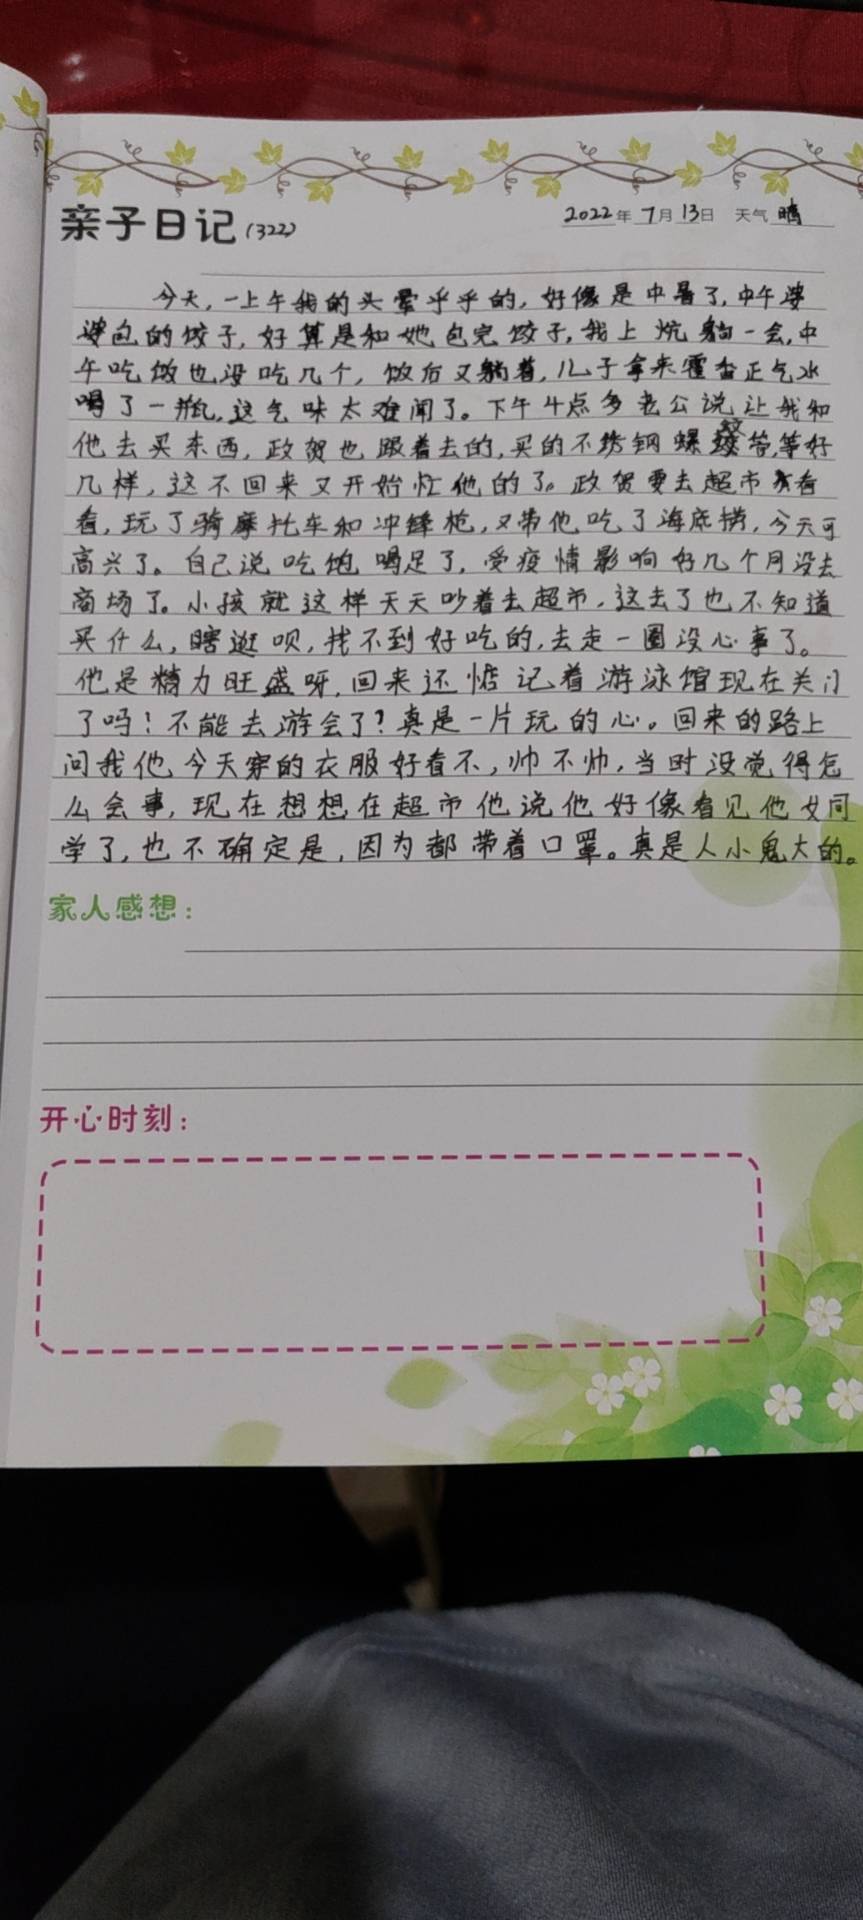 亲子日记(322)
2022年7月13日 天气晴
今天,一上午我的头晕乎乎的,好像是中暑了,中午婆
婆包的饺子,好算是和她包完饺子,我上炕躺一会,中
午吃饭也没吃几个,饭后又躺着,儿子拿来霍香正气水
喝了一瓶,这气味太难闻了。下午4点多老公说让我和
他去买东西,政贺也跟着去的,买的不锈钢螺纹管等好
几样,这不回来又开始忙他的了。政贺要去超市看
看,玩了骑摩托车和冲锋枪,又带他吃了海底捞,今天可
高兴了。自己说吃饱喝足了,受疫情影响好几个月没去
商场了。小孩就这样天天吵着去超市,这去了也不知道
买什么,瞎逛呗,找不到好吃的,去走一圈没心事了。
他是精力旺盛呀,回来还惦记着游泳馆现在关门
了吗!不能去游会了?真是一片玩的心。回来的路上
问我他今天穿的衣服好看不,帅不帅,当时没觉得怎
么会事,现在想想在超市他说他好像看见他女同
学了,也不确定是,因为都带着口罩。真是人小鬼大的。
家人感想:
开心时刻: